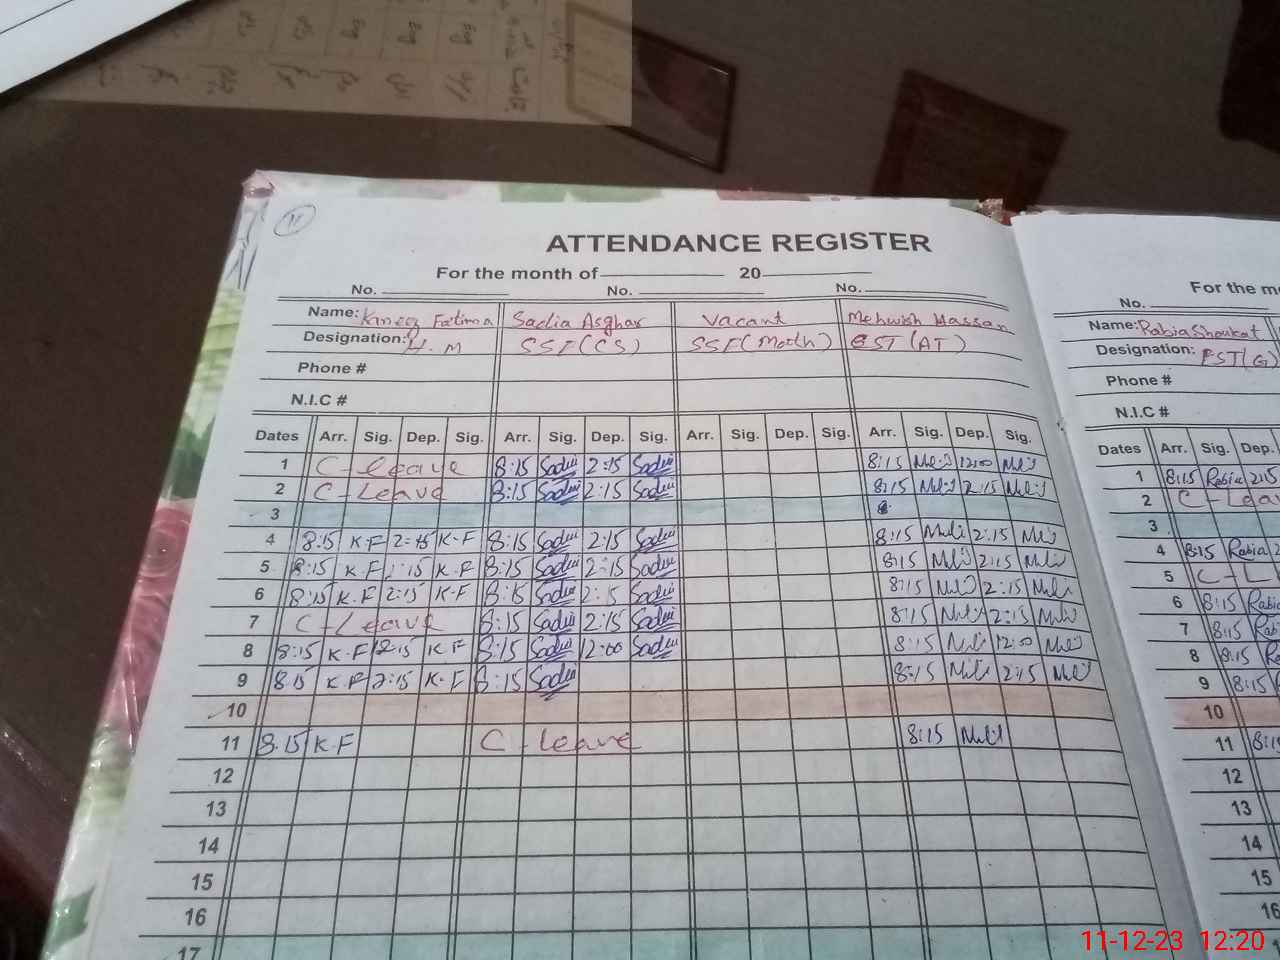 ATTENDANCE REGISTER
For the month of 20
No. No. No.
Name: Kneez Fatima Sadia Asghar Vacant Mehwish Hassan
Designation: H.M SSE(CS) SSE(Math) EST(AT)
Phone #
N.I.C #
Dates Arr. Sig. Dep. Sig. Arr. Sig. Dep. Sig. Arr. Sig. Dep. Sig. Arr. Sig. Dep. Sig.
1 C-leave 8:15 Sadia 2:15 Sadia 8:15 12:00
2 C-Leave 8:15 Sadia 2:15 Sadia 8:15 2:15
3
4 8:15 K.F 2:15 K.F 8:15 Sadia 2:15 Sadia 8:15 2:15
5 8:15 K.F 2:15 K.F 8:15 Sadia 2:15 Sadia 8:15 2:15
6 8:15 K.F 2:15 K.F 8:15 Sadia 2:15 Sadia 8:15 2:15
7 C-Leave 8:15 Sadia 2:15 Sadia 8:15 2:15
8 8:15 K.F 12:15 K.F 8:15 Sadia 12:00 Sadia 8:15 12:00
9 8:15 K.F 2:15 K.F 8:15 Sadia 8:15 2:15
10
11 8:15 K.F C-leave 8:15
12
13
14
15
16
17
For the mo
No.
Name: Rabia Shoukat
Designation: EST(G)
Phone #
N.I.C #
Dates Arr. Sig. Dep.
1 8:15 Rabia 2:15
2 C-Leav
3
4 8:15 Rabia 2
5 C-L
6 8:15 Rabi
7 8:15 Rab
8 8:15 Ra
9 8:15
10
11 8:1
12
13
14
15
16
11-12-23 12:20